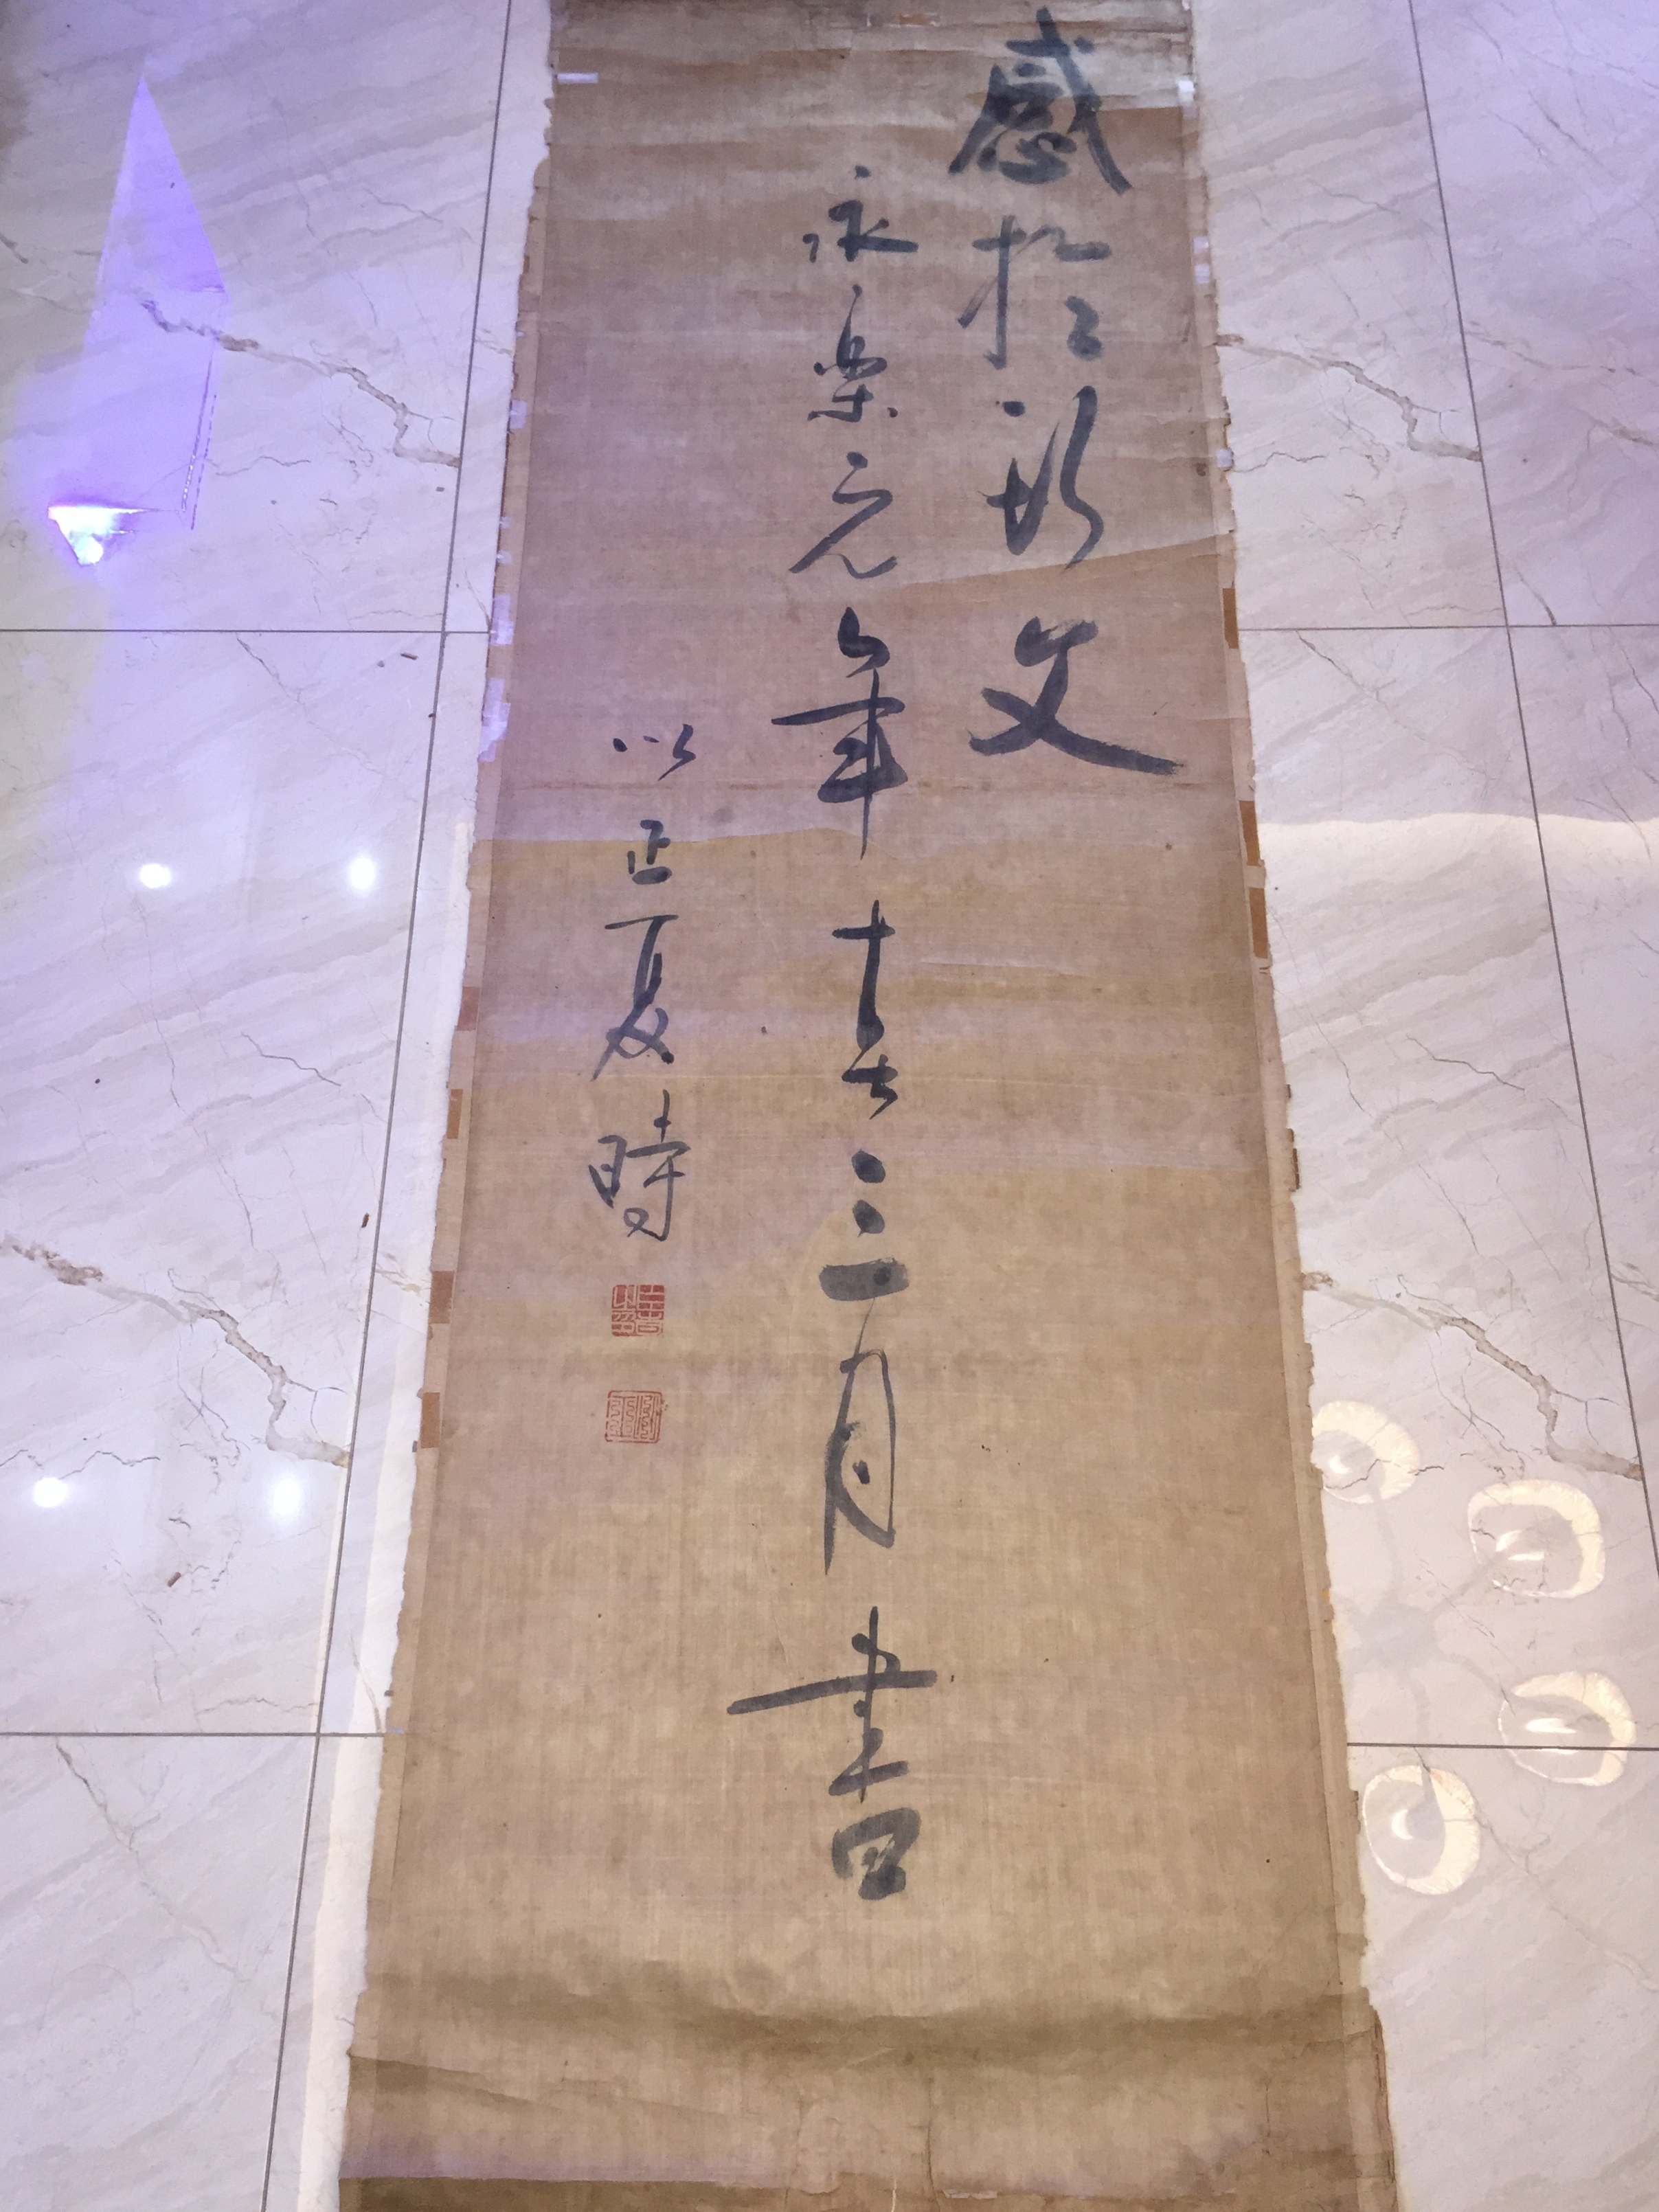 感於斯文
永樂元年春三月書
以正夏時